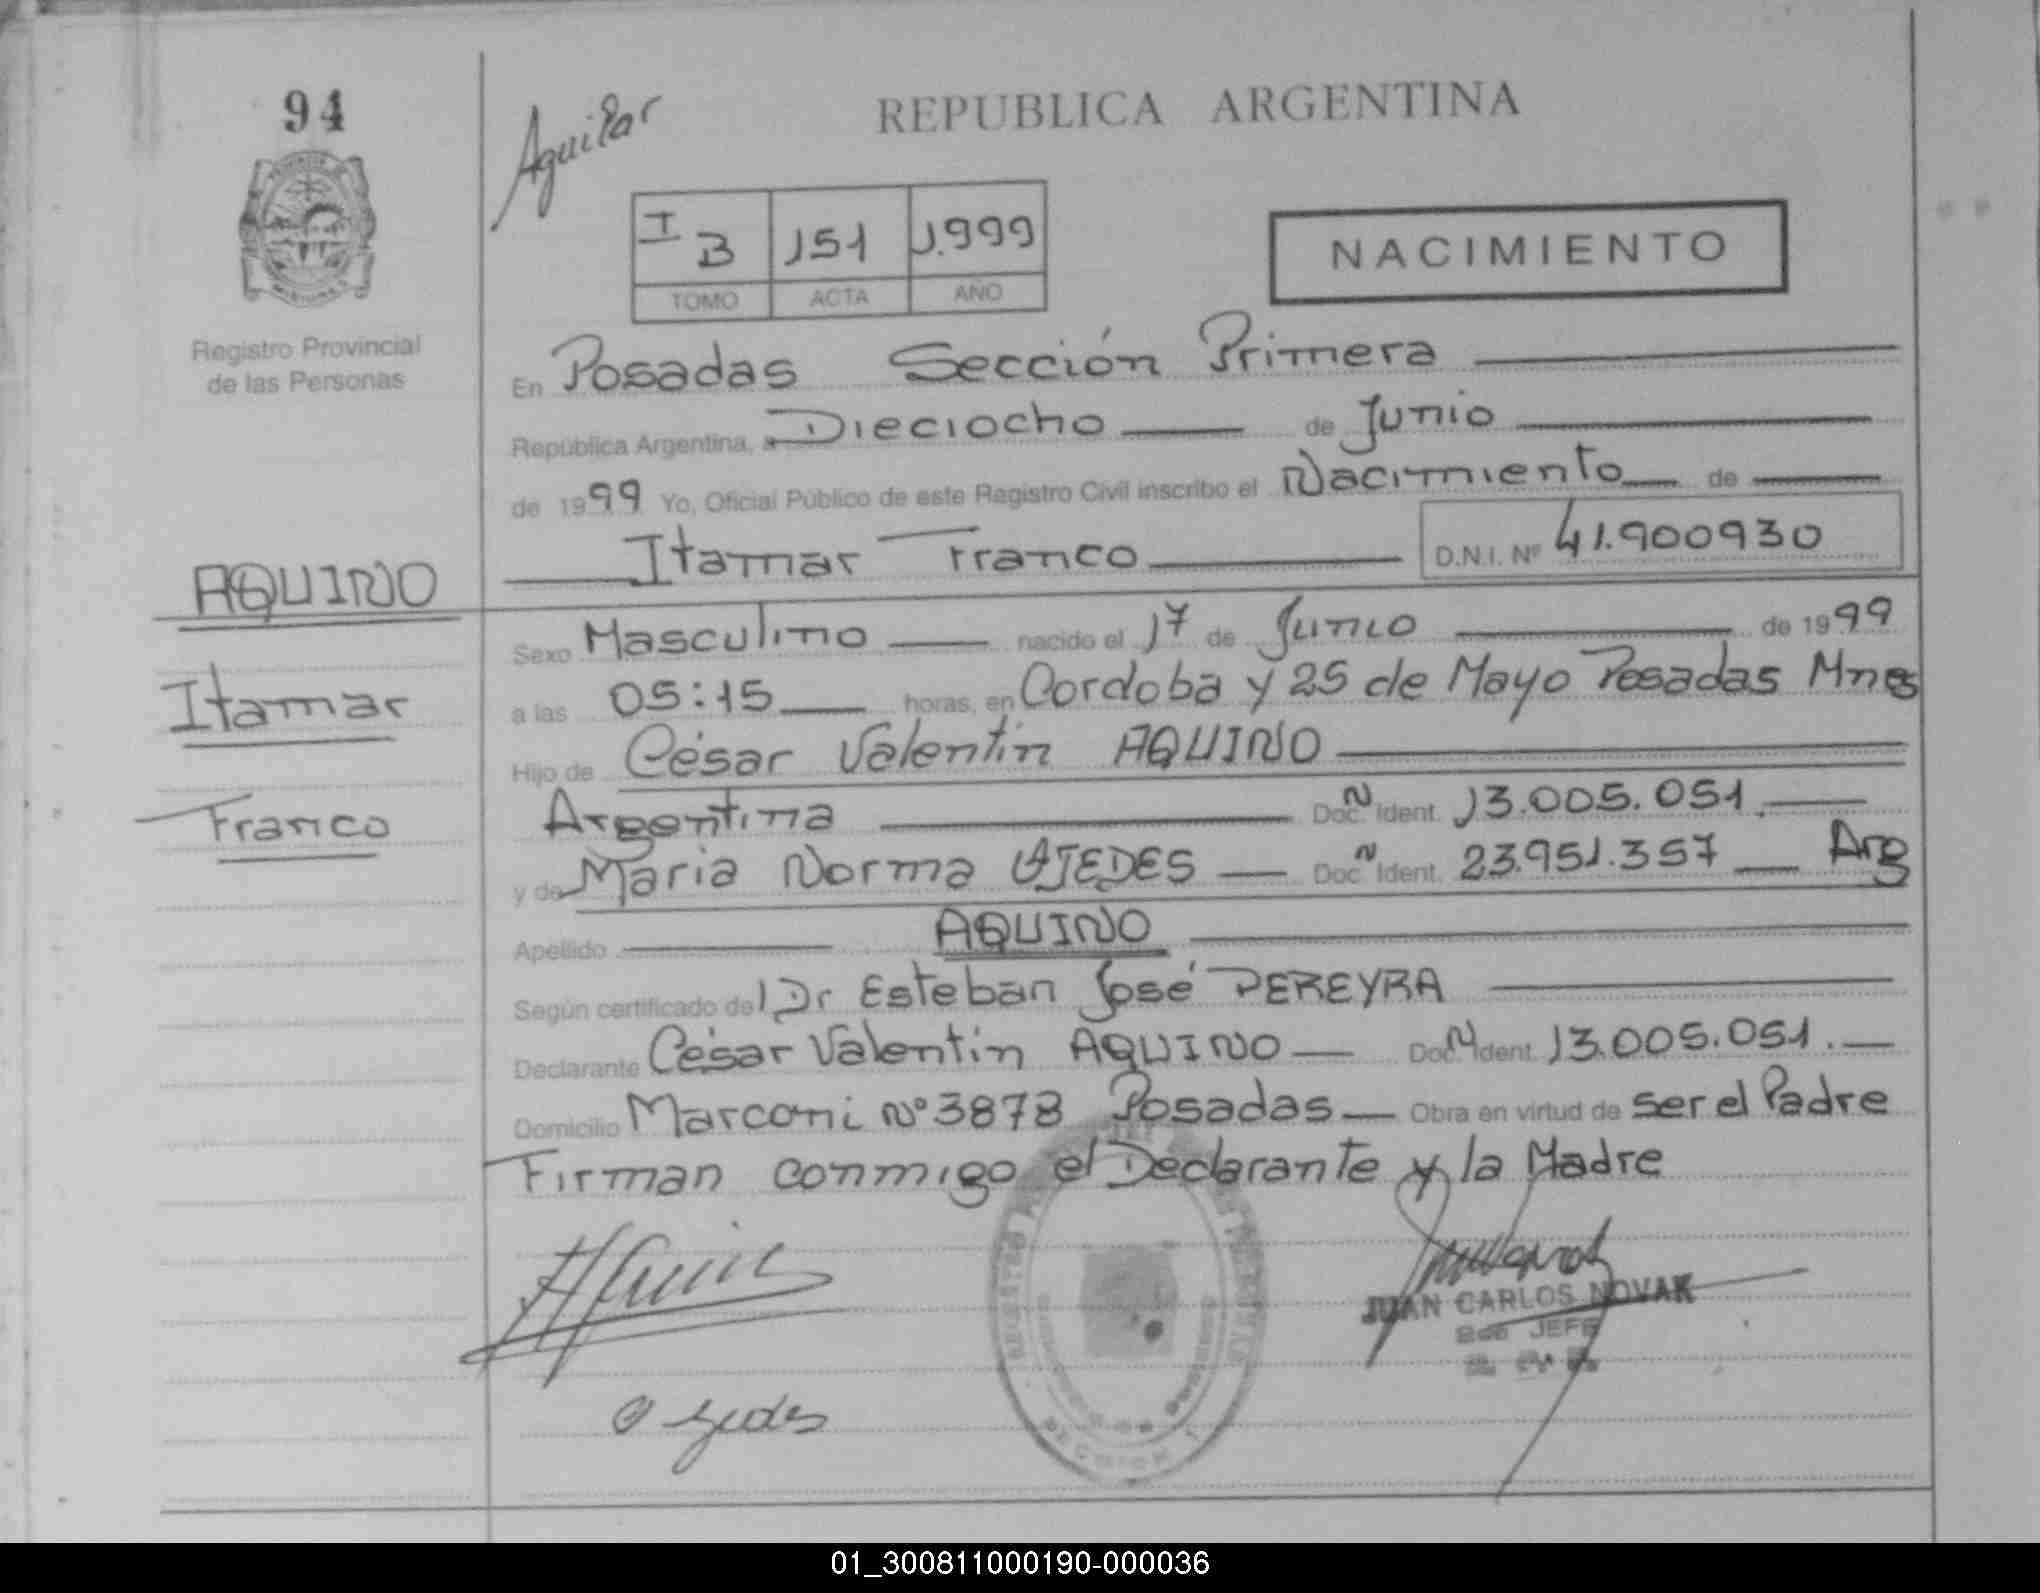 94
Aguilar
REPUBLICA ARGENTINA
I B 151 1.999
TOMO ACTA AÑO
NACIMIENTO
Registro Provincial
de las Personas
En Posadas Sección Primera
República Argentina, a Dieciocho de Junio
de 1999 Yo, Oficial Público de este Registro Civil inscribo el Nacimiento de
Itamar Franco D.N.I. Nº 41.900930
AQUINO
Itamar
Franco
Sexo Masculino nacido el 17 de Junio de 1999
a las 05:15 horas, en Cordoba y 25 de Mayo Posadas Mnes
Hijo de César Valentín AQUINO
Argentina Doc. N Ident. 13.005.051.
y de Maria Norma OJEDES Doc. N Ident. 23.951.357 Arg
Apellido AQUINO
Según certificado del Dr Esteban José PEREYRA
Declarante César Valentín AQUINO Doc. N Ident. 13.005.051.
Domicilio Marconi Nº 3878 Posadas Obra en virtud de ser el Padre
Firman conmigo el Declarante y la Madre
JUAN CARLOS NOVAK
JEFE
01_300811000190-000036